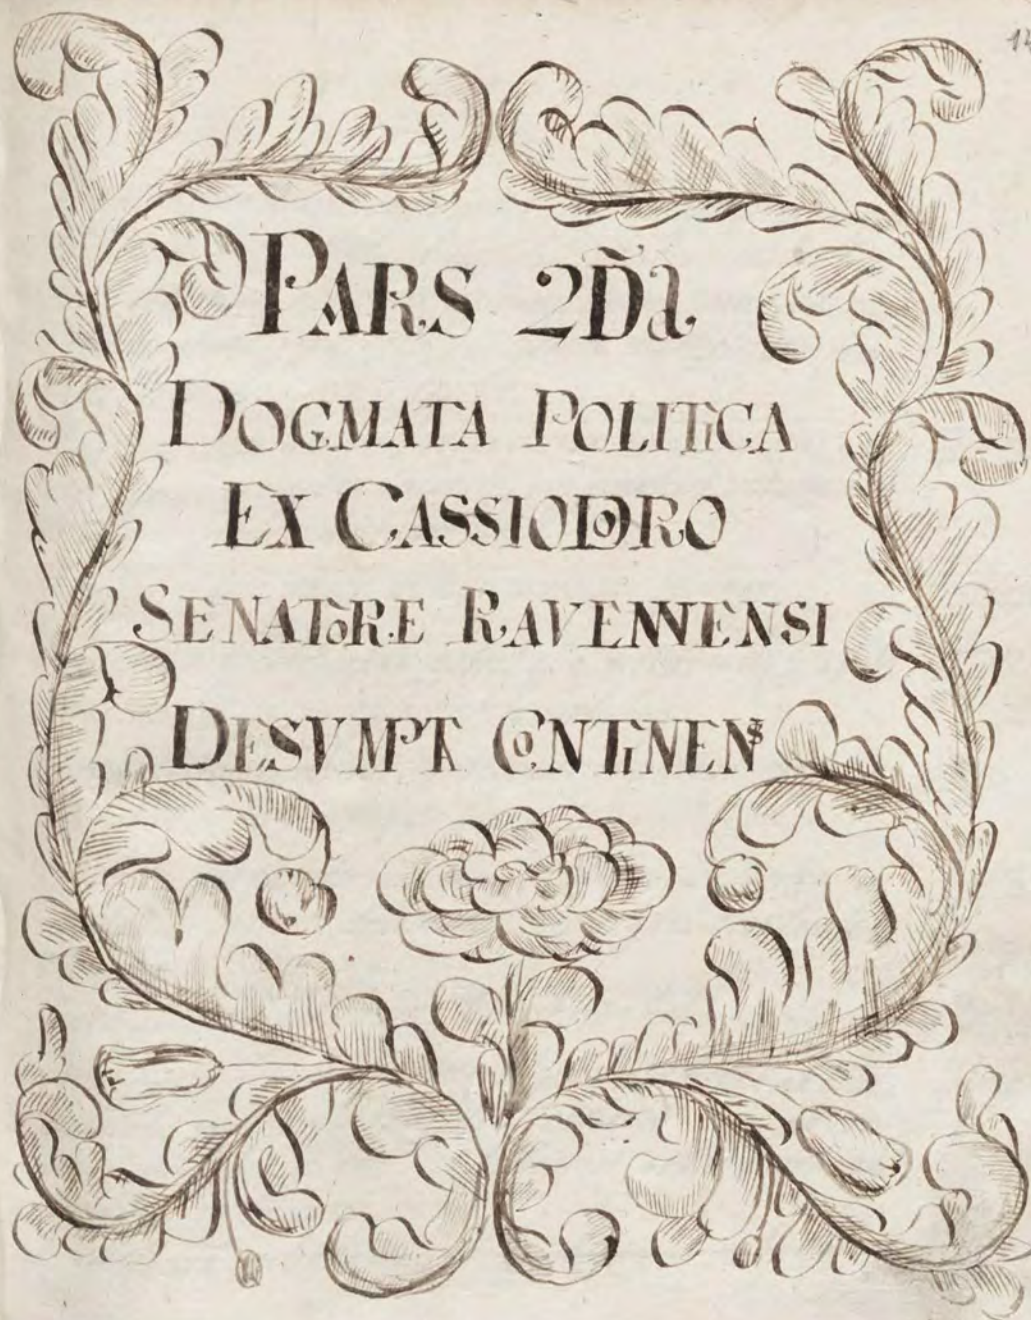 PARS 2D̃a
DOGMATA POLITICA
EX CASSIODORO
SENATORE RAVENNENSI
DESVMPTA CONTINENS